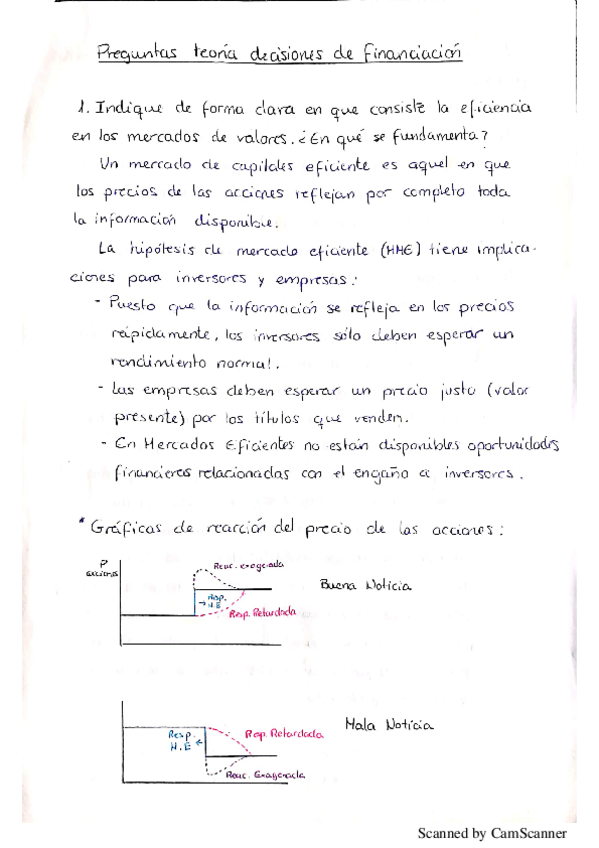 Preguntas teoría decisiones de financiación
1. Indique de forma clara en que consiste la eficiencia
en los mercados de valores. ¿En qué se fundamenta?
Un mercado de capitales eficiente es aquel en que
los precios de las acciones reflejan por completo toda
la información disponible.
La hipótesis de mercado eficiente (HME) tiene implica-
ciones para inversores y empresas:
- Puesto que la información se refleja en los precios
rápidamente, los inversores sólo deben esperar un
rendimiento normal.
- Las empresas deben esperar un precio justo (valor
presente) por los títulos que venden.
- En Mercados Eficientes no están disponibles oportunidades
financieras relacionadas con el engaño a inversores.
* Gráficas de reacción del precio de las acciones:
P
acciones
Reac. exagerada
Buena Noticia
Resp.
H.E
Resp. Retardada
Mala Noticia
Resp.
H.E
Resp. Retardada
Reac. Exagerada
Scanned by CamScanner